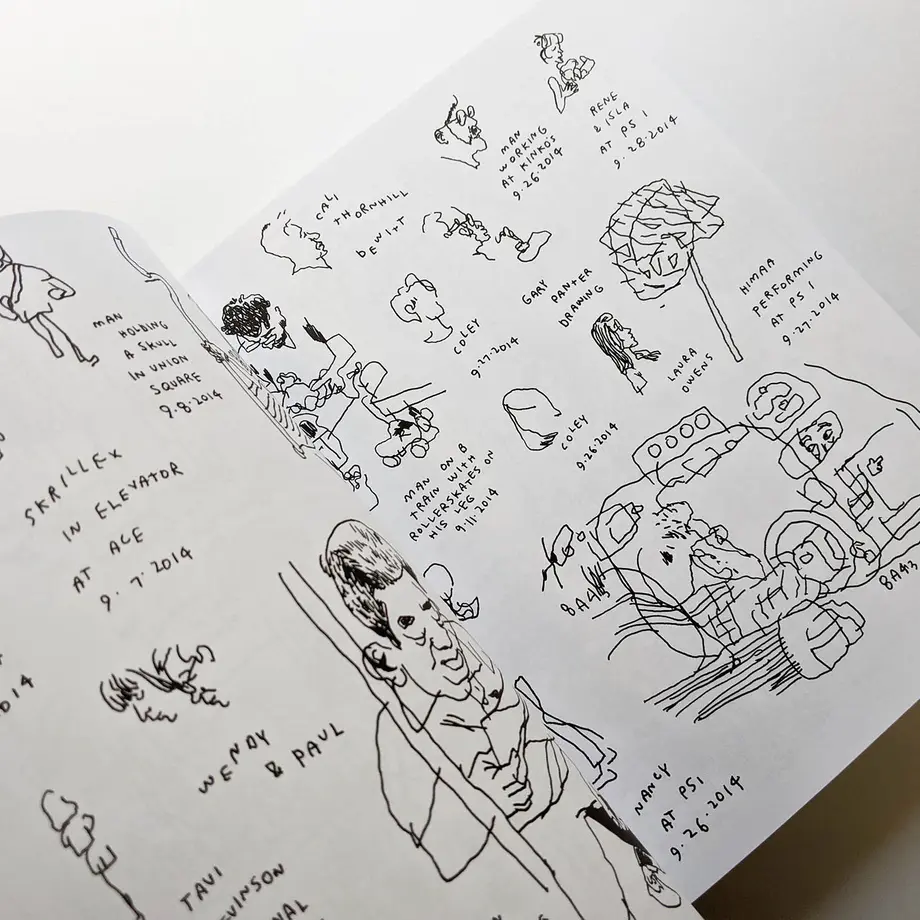 MAN
HOLDING
A SKULL
IN UNION
SQUARE
9.8.2014
SKRILLEX
IN ELEVATOR
AT ACE
9.7.2014
WENDY
& PAUL
TAVI
RENE
& ISLA
AT PS1
9.28.2014
MAN
WORKING
AT KINKOS
9.26.2014
CALI
THORNHILL
DEWITT
HIMAA
PERFORMING
AT PS1
9.27.2014
GARY
PANTER
DRAWING
COLEY
9.27.2014
LAURA
OWENS
COLEY
9.26.2014
MAN ON B
TRAIN WITH
ROLLERSKATES ON
HIS LEG
9.11.2014
8A43
8A43
NANCY
AT PS1
9.26.2014